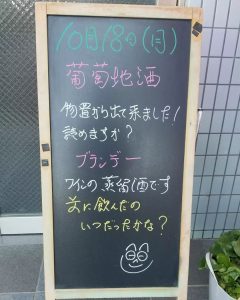 10月18日(月)
葡萄地酒
物置から出て来ました！
読めますか？
ブランデー
ワインの蒸留酒です
前に飲んだの
いつだったかな？